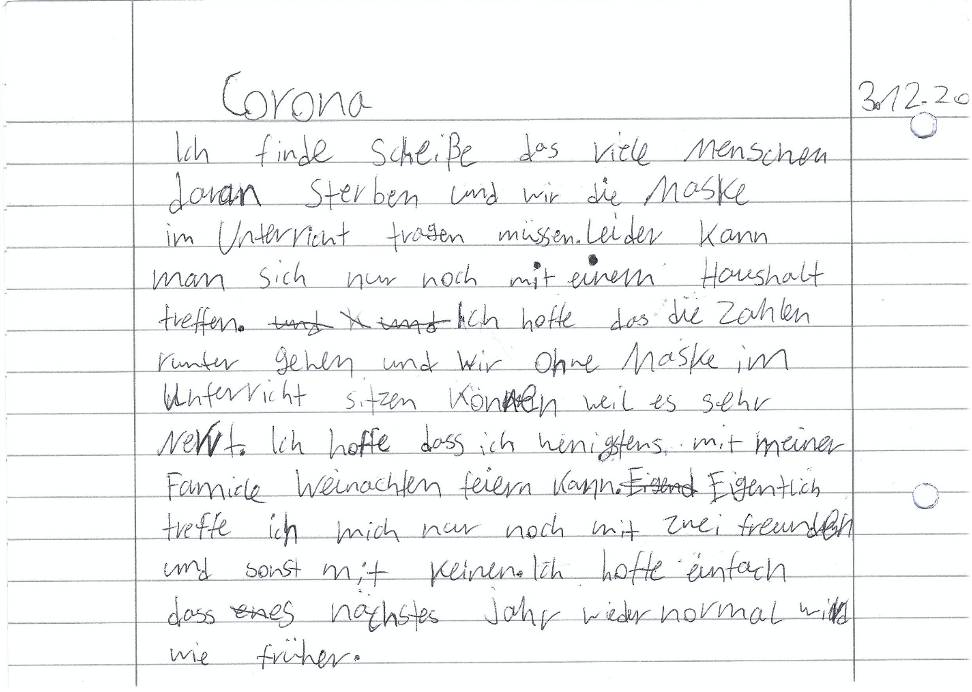 Corona
3.12.20
Ich finde Scheiße das viele Menschen
daran Sterben und wir die Maske
im Unterricht tragen müssen. Leider kann
man sich nur noch mit einem Haushalt
treffen. und X und Ich hoffe das die Zahlen
runter gehen und wir ohne Maske im
Unterricht sitzen können weil es sehr
nervt. Ich hoffe dass ich wenigstens mit meiner
Familie Weinachten feiern kann. Eigend Eigentlich
treffe ich mich nur noch mit zwei freunden
und sonst mit keinen. Ich hoffe einfach
dass es nächstes Jahr wieder normal wird
wie früher.